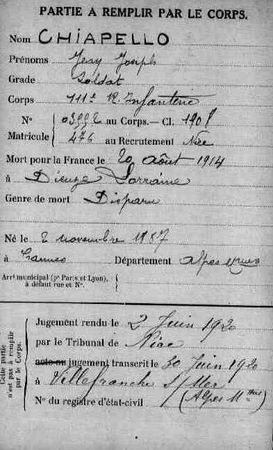 PARTIE A REMPLIR PAR LE CORPS.
Nom CHIAPELLO
Prénoms Jean Joseph
Grade Soldat
Corps 111e R. Infanterie
N° 03992 au Corps. — Cl. 1908
Matricule 476 au Recrutement Nice
Mort pour la France le 20 août 1914
à Dieuze Lorraine
Genre de mort Disparu
Né le 2 novembre 1887
à Cannes Département Alpes Mmes
Arrt municipal (pr Paris et Lyon),
à défaut rue et N°.
Cette partie
n'est pas à remplir
par le Corps.
Jugement rendu le 2 Juin 1920
par le Tribunal de Nice
acte ou jugement transcrit le 30 Juin 1920
à Villefranche s/Mer
(Alpes Mmes)
N° du registre d'état-civil